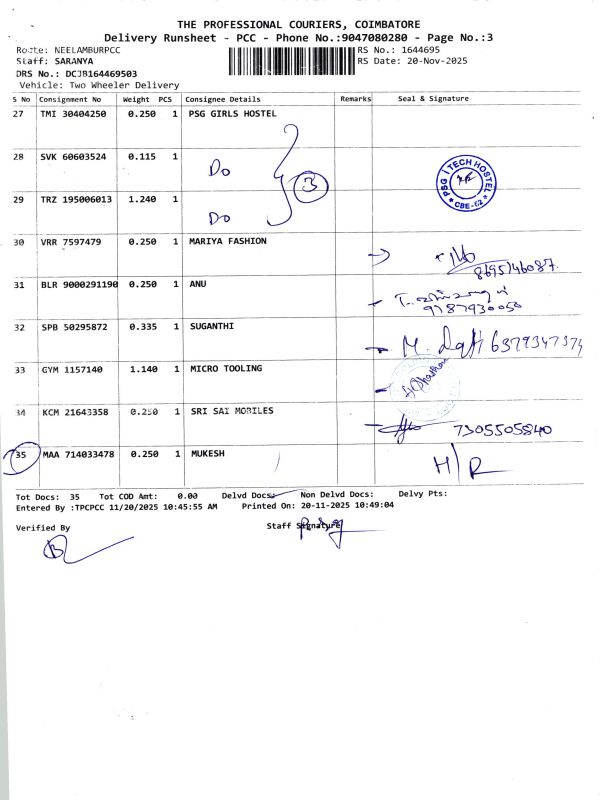 THE PROFESSIONAL COURIERS, COIMBATORE
Delivery Runsheet - PCC - Phone No.:9047080280 - Page No.:3
Route: NEELAMBURPCC
RS No.: 1644695
Staff: SARANYA
RS Date: 20-Nov-2025
DRS No.: DCJB164469503
Vehicle: Two Wheeler Delivery
S No Consignment No Weight PCS Consignee Details Remarks Seal & Signature
27 TMI 30404250 0.250 1 PSG GIRLS HOSTEL
28 SVK 60603524 0.115 1 Do
3
PSG iTECH HOSTEL * CBE-62 *
29 TRZ 195006013 1.240 1 Do
30 VRR 7597479 0.250 1 MARIYA FASHION 8695146087
31 BLR 9000291190 0.250 1 ANU 9787930050
32 SPB 50295872 0.335 1 SUGANTHI M. 6379347374
33 GYM 1157140 1.140 1 MICRO TOOLING
34 KCM 21643358 0.250 1 SRI SAI MOBILES 7305505840
35 MAA 714033478 0.250 1 MUKESH H/R
Tot Docs: 35 Tot COD Amt: 0.00 Delvd Docs: Non Delvd Docs: Delvy Pts:
Entered By :TPCPCC 11/20/2025 10:45:55 AM Printed On: 20-11-2025 10:49:04
Verified By Staff Signature